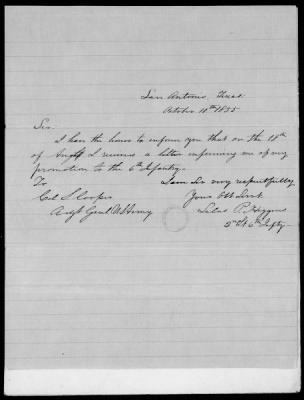 San Antonio, Texas
October 10th 1855
Sir.
I have the honor to inform you that on the 18th
of I received a letter informing me of my
promotion to the 6th Infantry.
To I am Sir very respectfully
Col S. Cooper Your Obt Servt
Adjt Genl US Army Silas P. Higgins
2nd Lt 6th Infty